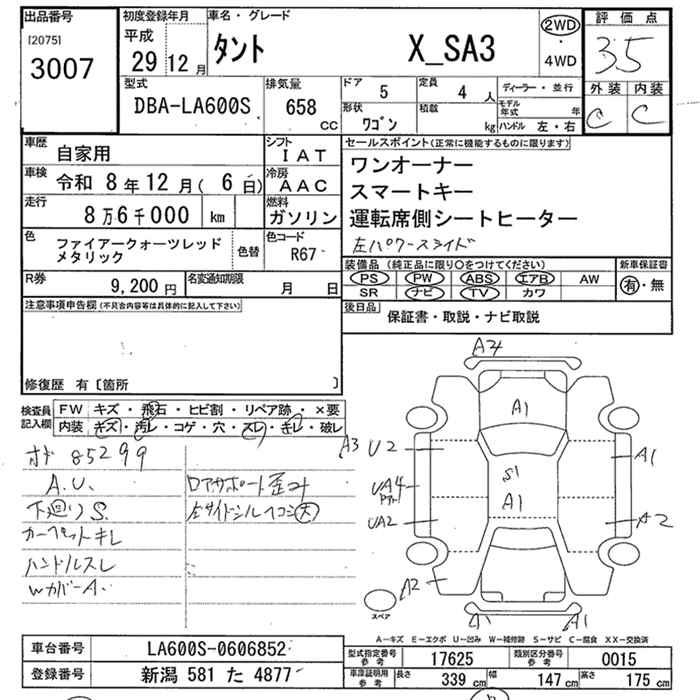 出品番号 初度登録年月 車名・グレード 評価点
[2075] 平成
3007 29 12月 タント X_SA3 2WD・4WD 3.5
型式 排気量 ドア 5 定員 4人 ディーラー・並行 外装 内装
DBA-LA600S 658 CC 形状 ワゴン 積載 kg モデル年式 年 ハンドル 左・右 C C
車歴 自家用 シフト IAT セールスポイント(正常に機能するものに限ります)
車検 令和 8年12月(6日) 冷房 AAC ワンオーナー
スマートキー
走行 8万6千000 km 燃料 ガソリン 運転席側シートヒーター
色 ファイアークォーツレッド 色替 色コード 左パワースライド
メタリック R67
装備品(純正品に限り○をつけてください) 新車保証書
R券 9,200円 名変通知期限 月 日 PS PW ABS エアB AW 有・無
SR ナビ TV カワ
注意事項申告欄(不具合内容等は具体的に記入して下さい) 後日品 保証書・取説・ナビ取説
修復歴 有〔箇所 〕
検査員記入欄 FW キズ・飛石・ヒビ割・リペア跡・×要
内装 キズ・汚レ・コゲ・穴・スレ・キレ・破レ
85299
A.U. ロアサポート歪コト
下廻りS. 左サイドシルヘコミ大
カーペットキレ
ハンドルスレ
WカバーA.
A4
A1
A3 U2 A1
S1
UA4
A1
UA2 A2
A2
スペア
A1 A1
A-キズ E-エクボ U-凹み W-補修跡 S-サビ C-腐食 XX-交換済
車台番号 LA600S-0606852 型式指定番号 参考 17625 類別区分番号 参考 0015
登録番号 新潟 581 た 4877 車庫証明用 参考 長さ 339 cm 幅 147 cm 高さ 175 cm